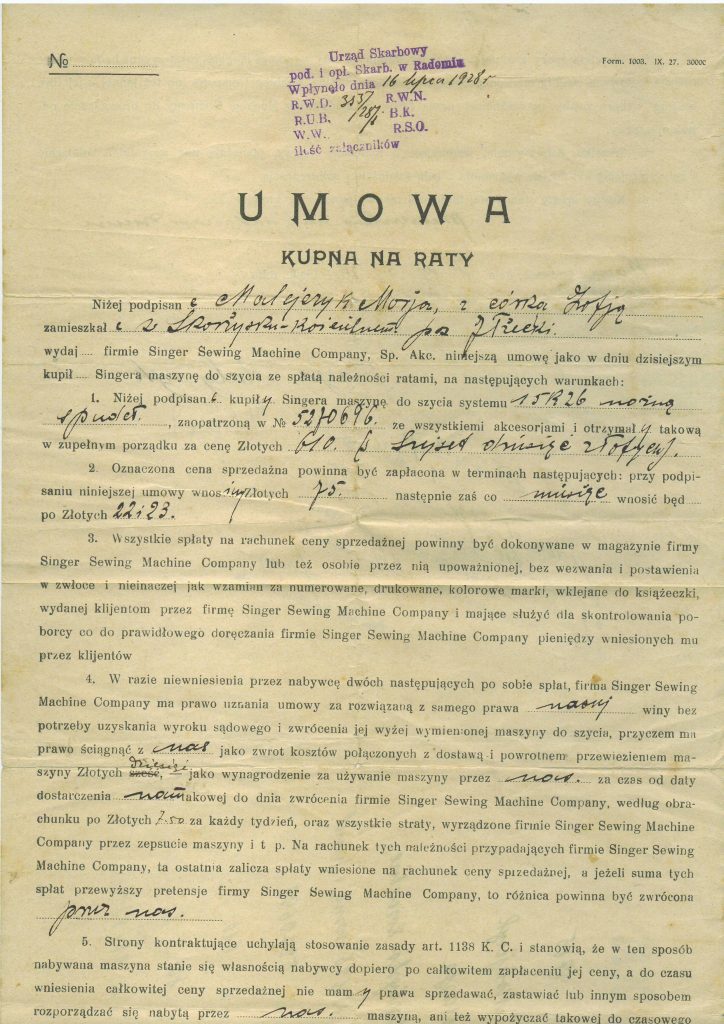 No
Urząd Skarbowy
pod. i opł. Skarb. w Radomiu
Wpłynęło dnia 16 lipca 1928 r
R.W.D. R.W.N.
R.U.B. B.K.
W.W. R.S.O.
ilość załączników
Form. 1003. IX. 27.
UMOWA
KUPNA NA RATY
Niżej podpisan Marja, z córką Zofją
zamieszkał
wydaj firmie Singer Sewing Machine Company, Sp. Akc. niniejszą umowę jako w dniu dzisiejszym
kupił Singera maszynę do szycia ze spłatą należności ratami, na następujących warunkach:
1. Niżej podpisan kupił y Singera maszynę do szycia systemu 15K26 nożną
z pudeł. zaopatrzoną w № 5270696. ze wszystkiemi akcesorjami i otrzymał y takową
w zupełnym porządku za cenę Złotych 610.
2. Oznaczona cena sprzedażna powinna być zapłacona w terminach następujących: przy podpi-
saniu niniejszej umowy wnos Złotych 75. następnie zaś co miesiąc wnosić będ
po Złotych 22 i 23.
3. Wszystkie spłaty na rachunek ceny sprzedażnej powinny być dokonywane w magazynie firmy
Singer Sewing Machine Company lub też osobie przez nią upoważnionej, bez wezwania i postawienia
w zwłoce i nieinaczej jak wzamian za numerowane, drukowane, kolorowe marki, wklejane do książeczki,
wydanej klijentom przez firmę Singer Sewing Machine Company i mające służyć dla skontrolowania po-
borcy co do prawidłowego doręczania firmie Singer Sewing Machine Company pieniędzy wniesionych mu
przez klijentów
4. W razie niewniesienia przez nabywcę dwóch następujących po sobie spłat, firma Singer Sewing
Machine Company ma prawo uznania umowy za rozwiązaną z samego prawa naszej winy bez
potrzeby uzyskania wyroku sądowego i zwrócenia jej wyżej wymienionej maszyny do szycia, przyczem ma
prawo ściągnąć z nas jako zwrot kosztów połączonych z dostawą i powrotnem przewiezieniem ma-
szyny Złotych dziesięć, jako wynagrodzenie za używanie maszyny przez nas. za czas od daty
dostarczenia nam takowej do dnia zwrócenia firmie Singer Sewing Machine Company, według obra-
chunku po Złotych 7.50 za każdy tydzień, oraz wszystkie straty, wyrządzone firmie Singer Sewing Machine
Company przez zepsucie maszyny i t p. Na rachunek tych należności przypadających firmie Singer Sewing
Machine Company, ta ostatnia zalicza spłaty wniesione na rachunek ceny sprzedażnej, a jeżeli suma tych
spłat przewyższy pretensje firmy Singer Sewing Machine Company, to różnica powinna być zwrócona
przez nas.
5. Strony kontraktujące uchylają stosowanie zasady art. 1138 K. C. i stanowią, że w ten sposób
nabywana maszyna stanie się własnością nabywcy dopiero po całkowitem zapłaceniu jej ceny, a do czasu
wniesienia całkowitej ceny sprzedażnej nie mam y prawa sprzedawać, zastawiać lub innym sposobem
rozporządzać się nabytą przez nas. maszyną, ani też wypożyczać takowej do czasowego